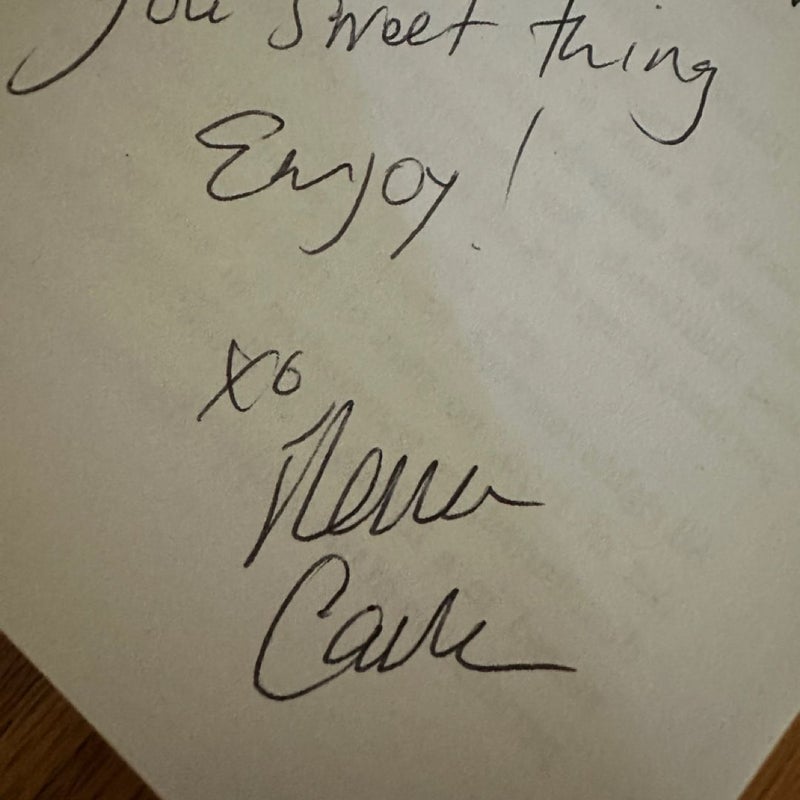 you sweet thing
Enjoy!
xo